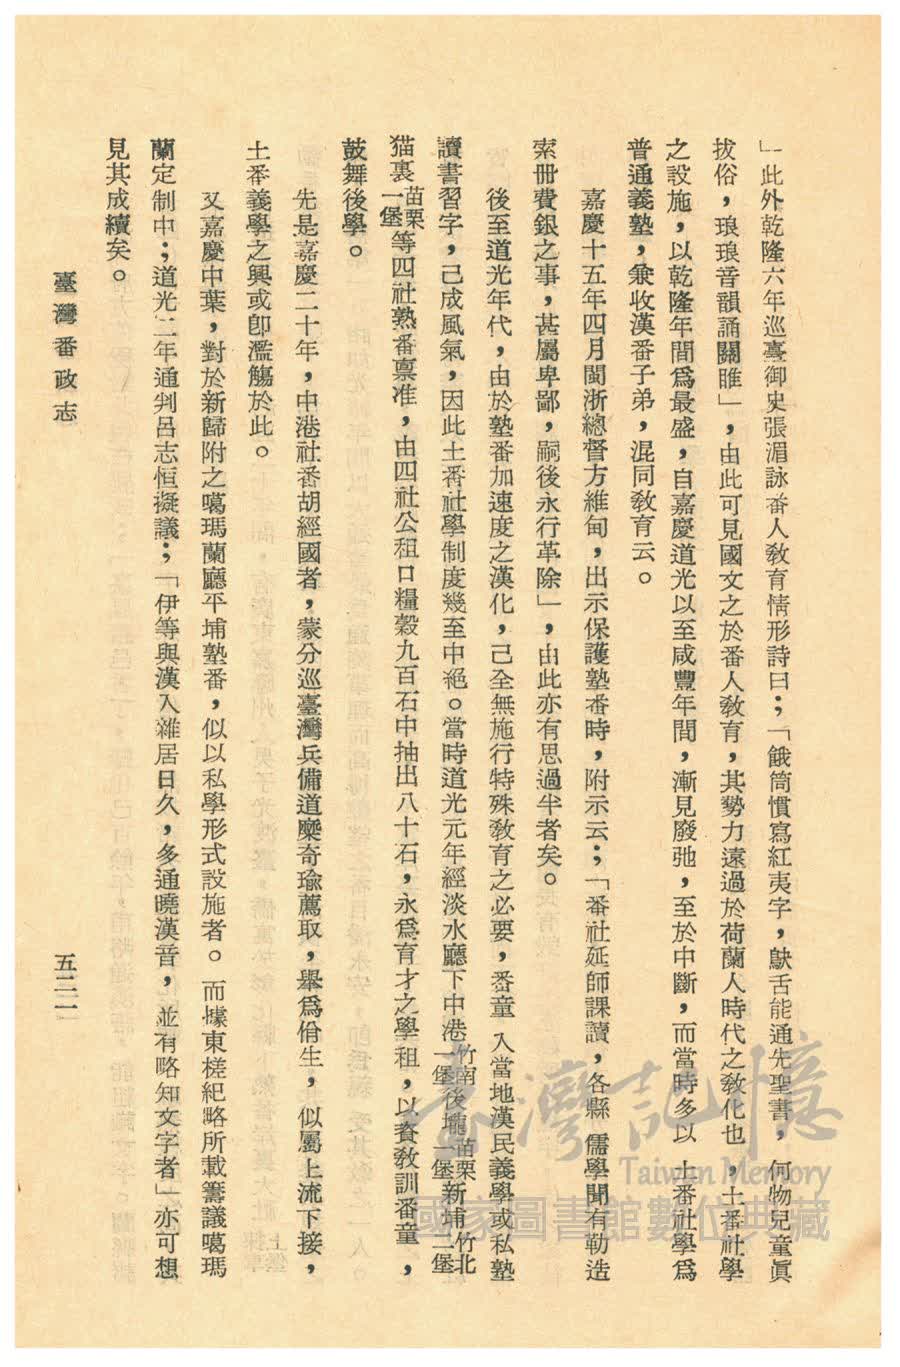 」此外乾隆六年巡臺御史張湄詠番人敎育情形詩曰；「餓筒慣寫紅夷字，鴃舌能通先聖書，何物兒童眞
拔俗，琅琅音韻誦關睢」，由此可見國文之於番人敎育，其勢力遠過於荷蘭人時代之敎化也，土番社學
之設施，以乾隆年間爲最盛，自嘉慶道光以至咸豐年間，漸見廢弛，至於中斷，而當時多以土番社學爲
普通義塾，兼收漢番子弟，混同敎育云。
嘉慶十五年四月閩浙總督方維甸，出示保護塾番時，附示云；「番社延師課讀，各縣儒學聞有勒造
索册費銀之事，甚屬卑鄙，嗣後永行革除」，由此亦有思過半者矣。
後至道光年代，由於塾番加速度之漢化，己全無施行特殊敎育之必要，番童入當地漢民義學或私塾
讀書習字，己成風氣，因此土番社學制度幾至中絕。當時道光元年經淡水廳下中港竹南一堡後壠苗栗一堡新埔竹北二堡
猫裏苗栗一堡等四社熟番禀准，由四社公租口糧穀九百石中抽出八十石，永爲育才之學租，以資敎訓番童，
鼓舞後學。
先是嘉慶二十年，中港社番胡經國者，蒙分巡臺灣兵備道糜奇瑜薦取，舉爲佾生，似屬上流下接，
土番義學之興或卽濫觴於此。
又嘉慶中葉，對於新歸附之噶瑪蘭廳平埔塾番，似以私學形式設施者。而據東槎紀略所載籌議噶瑪
蘭定制中；道光二年通判呂志恒擬議；「伊等與漢入雜居日久，多通曉漢音，並有略知文字者」亦可想
見其成績矣。
臺灣番政志
五三一
臺灣記憶
Taiwan Memory
國家圖書館數位典藏